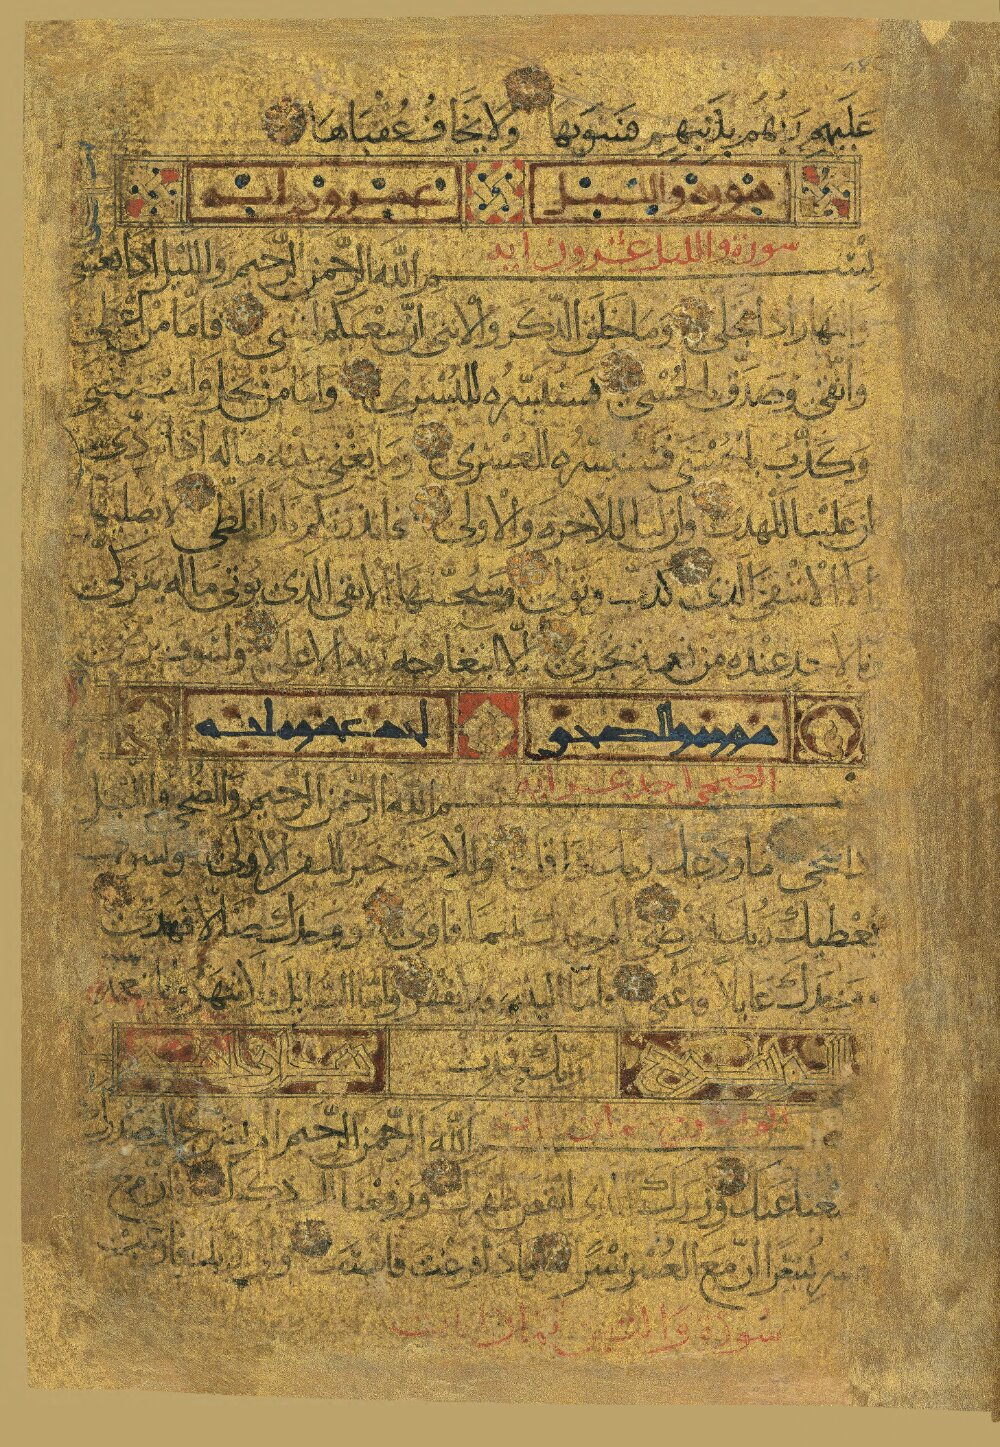 عليهم ربهم بذنبهم فسويها ولا يخاف عقباها
سورة والليل عشرون اية
سورة والليل عشرون اية
بسم الله الرحمن الرحيم والليل اذا يغشى
والنهار اذا تجلى وما خلق الذكر والانثى ان سعيكم لشتى فاما من اعطى
واتقى وصدق بالحسنى فسنيسره لليسرى واما من بخل واستغنى
وكذب بالحسنى فسنيسره للعسرى وما يغنى عنه ماله اذا تردى
ان علينا للهدى وان لنا للاخرة والاولى فانذرتكم نارا تلظى لا يصليها
الا الاشقى الذى كذب وتولى وسيجنبها الاتقى الذى يوتى ماله يتزكى
وما لاحد عنده من نعمة تجزى الا ابتغا وجه ربه الاعلى ولسوف يرضى
سورة والضحى احدى عشرة اية
الضحى احد عشر اية
الله الرحمن الرحيم والضحى والليل
اذا سجى ما ودعك ربك وما قلى وللاخرة خير لك من الاولى ولسوف
يعطيك ربك فترضى الم يجدك يتيما فاوى ووجدك ضالا فهدى
ووجدك عايلا فاغنى فاما اليتيم فلا تقهر واما السايل فلا تنهر واما بنعمة
ربك فحدث
الله الرحمن الرحيم الم نشرح لك صدرك
ووضعنا عنك وزرك الذى انقض ظهرك ورفعنا لك ذكرك فان مع
العسر يسرا ان مع العسر يسرا فاذا فرغت فانصب والى ربك فارغب
سورة والتين ثمان ايات